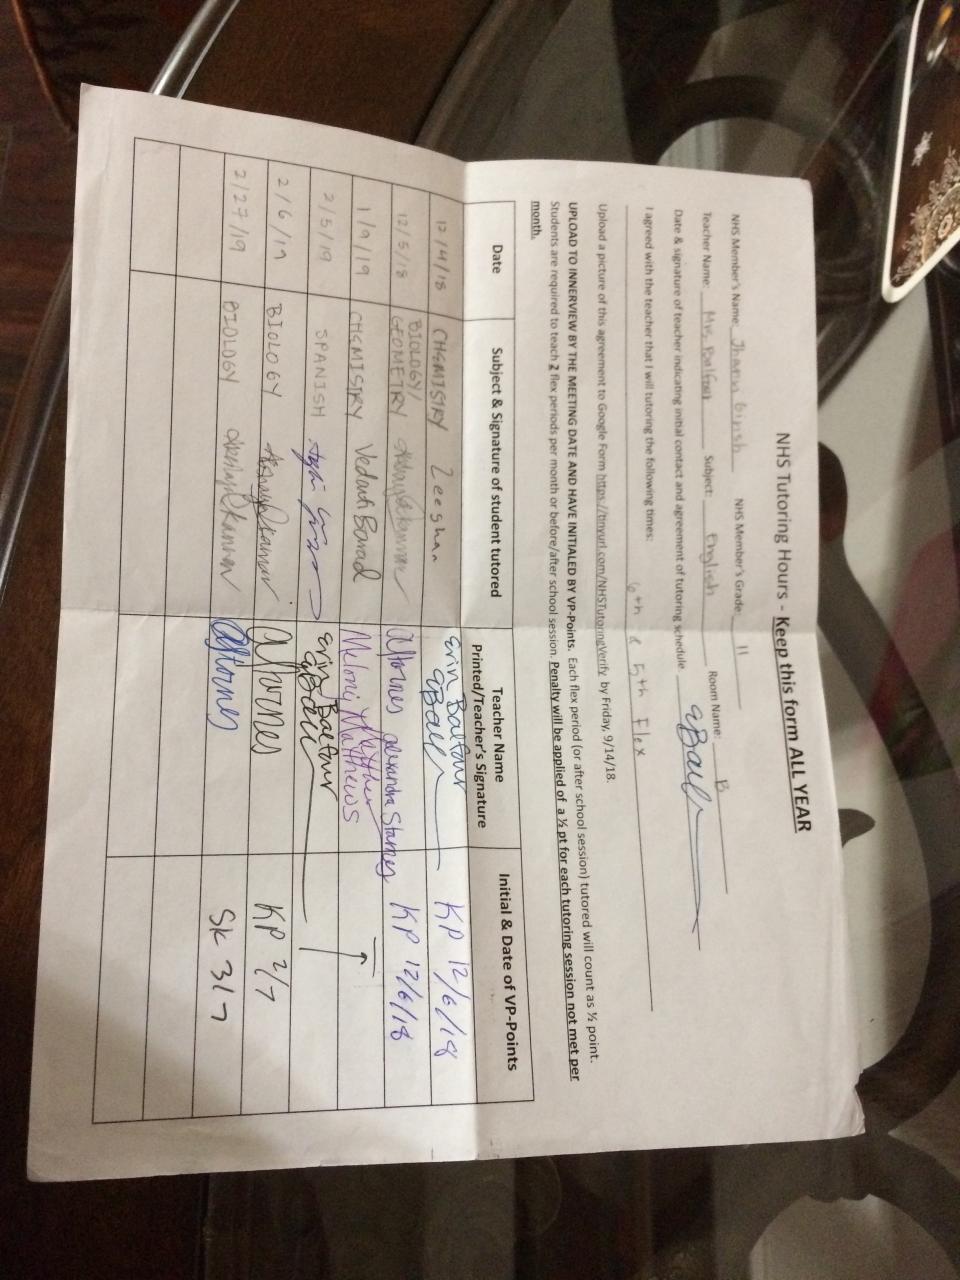 NHS Tutoring Hours - Keep this form ALL YEAR
NHS Member's Name: NHS Member's Grade 11
Teacher Name: Mrs. Balfour Subject: English Room Name: B
Date & signature of teacher indicating initial contact and agreement of tutoring schedule
I agreed with the teacher that I will tutoring the following times:
6th & 5th Flex
Upload a picture of this agreement to Google Form https://tinyurl.com/NHSTutoringVerify by Friday, 9/14/18.
UPLOAD TO INNERVIEW BY THE MEETING DATE AND HAVE INITIALED BY VP-Points. Each flex period (or after school session) tutored will count as ½ point.
Students are required to teach 2 flex periods per month or before/after school session. Penalty will be applied of a ½ pt for each tutoring session not met per
month.
Date Subject & Signature of student tutored Teacher Name Printed/Teacher's Signature Initial & Date of VP-Points
12/4/18 CHEMISTRY Zeeshan Erin Balfour KP 12/6/18
12/5/18 BIOLOGY/ GEOMETRY Alexandra Starnes KP 12/6/18
1/9/19 CHEMISTRY Vedant Barad Meloni Matthews
2/5/19 SPANISH Erin Balfour
2/6/19 BIOLOGY KP 2/7
2/27/19 BIOLOGY SK 3/7